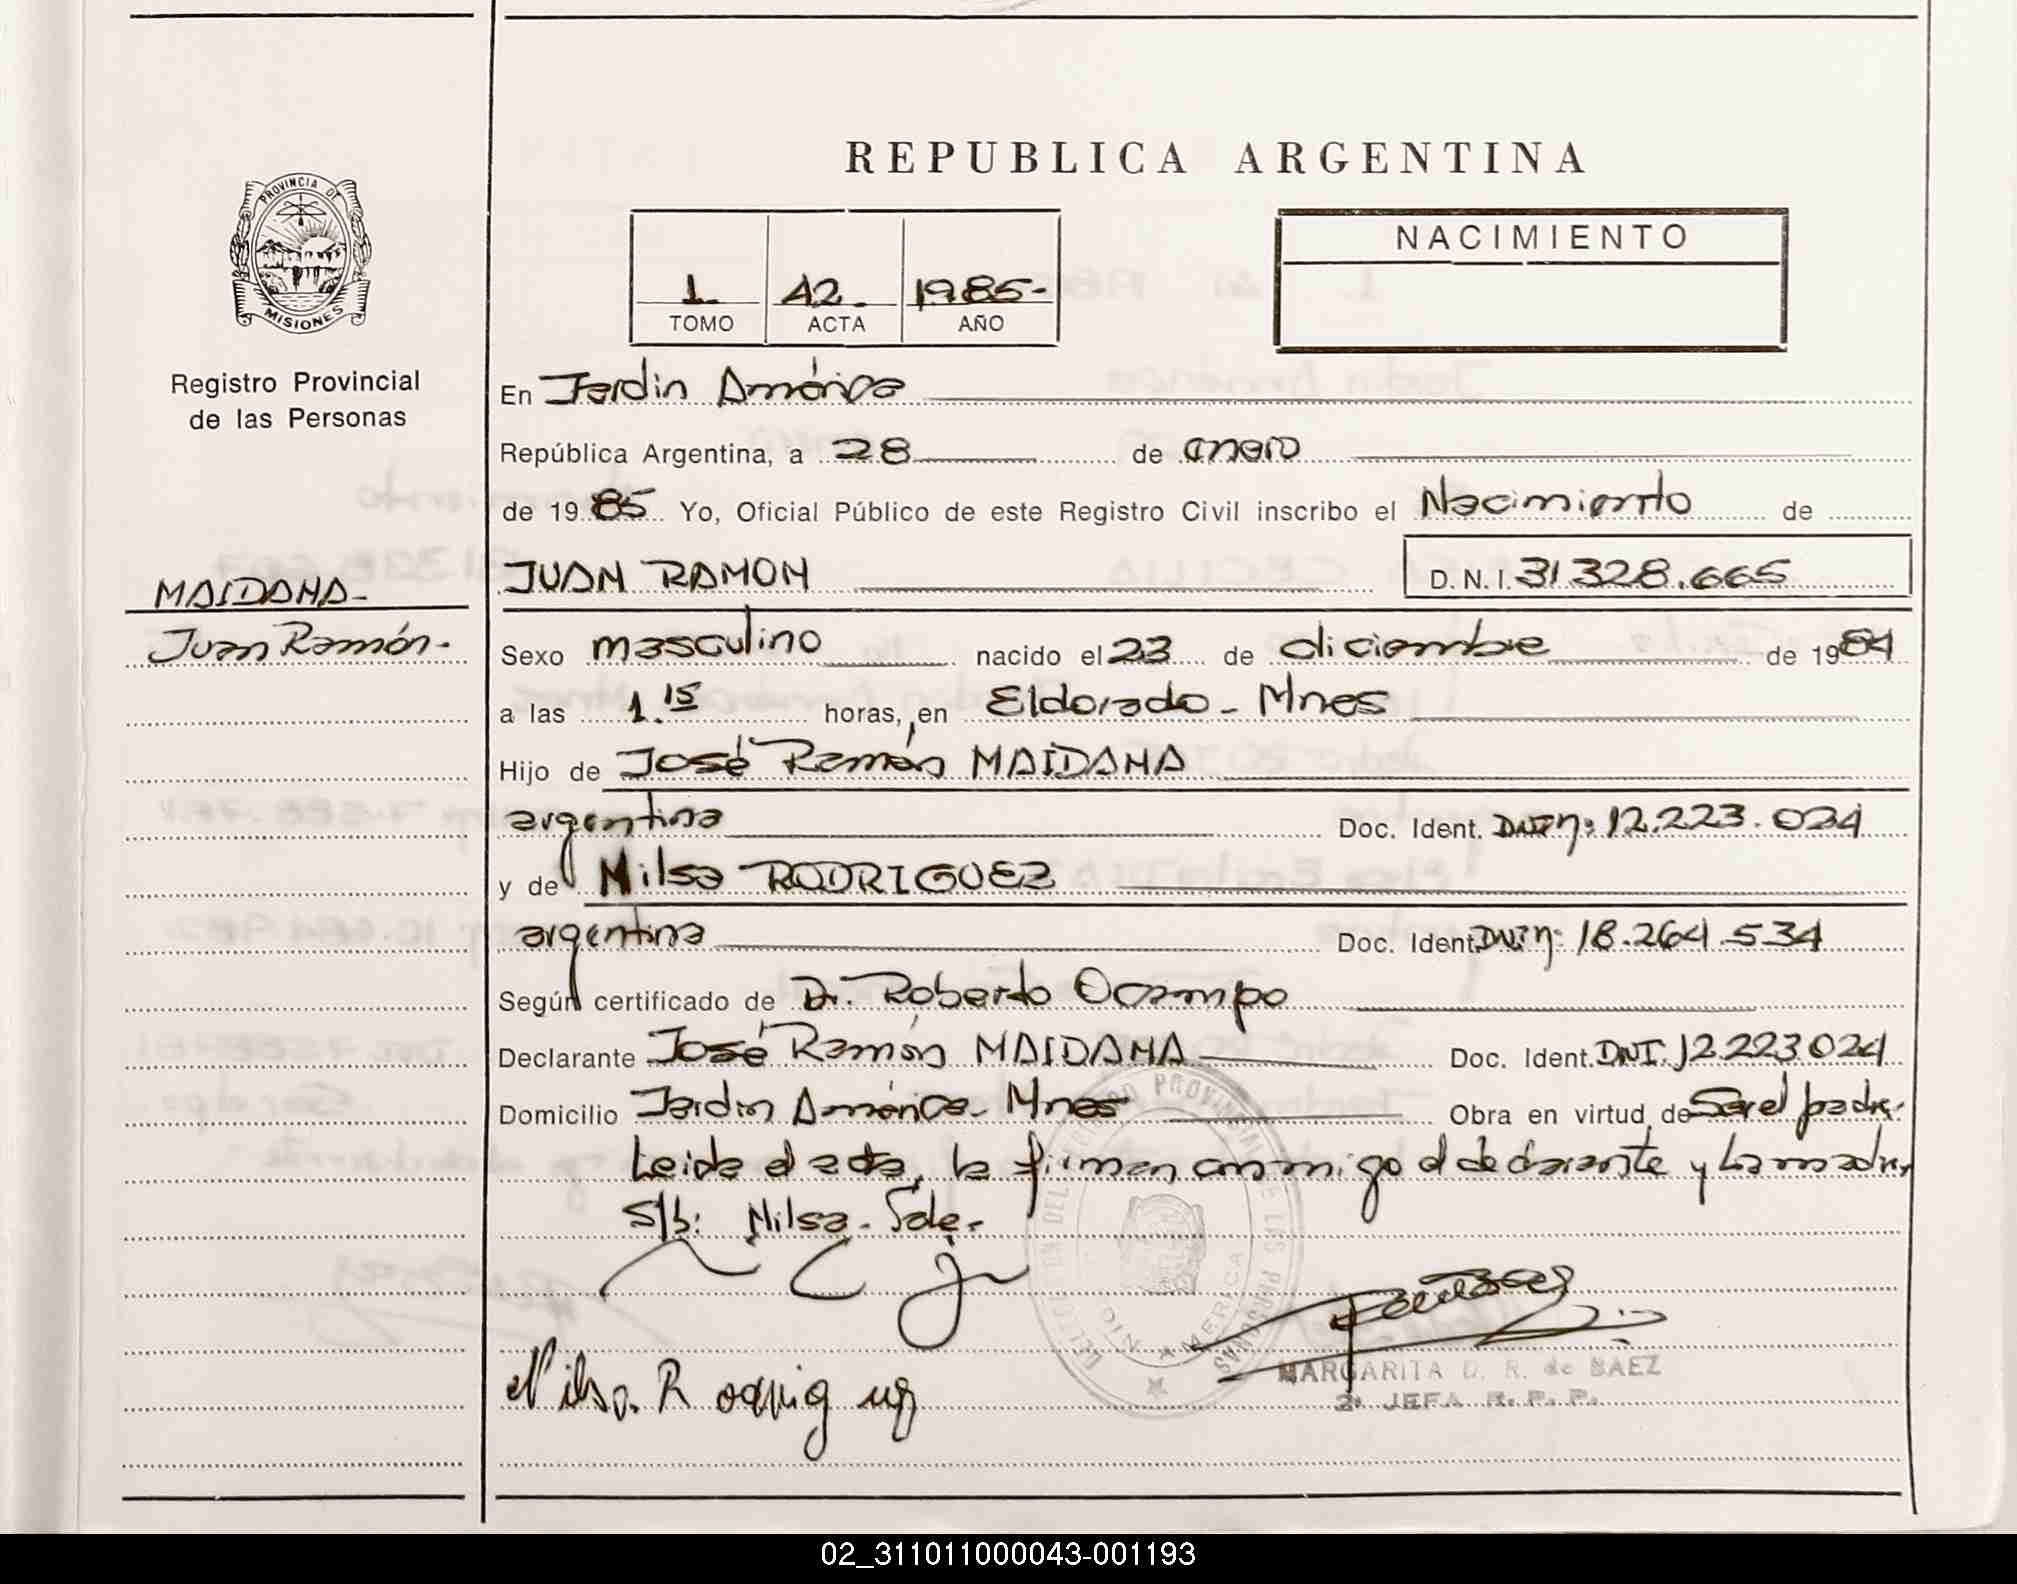 REPUBLICA ARGENTINA
PROVINCIA DE
MISIONES
Registro Provincial
de las Personas
1 42 1985-
TOMO ACTA AÑO
NACIMIENTO
En Jardín América
República Argentina, a 28 de enero
de 1985 Yo, Oficial Público de este Registro Civil inscribo el Nacimiento de
JUAN RAMON D.N.I. 31.328.665
MAIDANA-
Juan Ramón.-
Sexo masculino nacido el 23 de diciembre de 1984
a las 1.15 horas, en Eldorado - Mnes
Hijo de José Ramón MAIDANA
argentina Doc. Ident. DNI Nº: 12.223.024
y de Nilsa RODRIGUEZ
argentina Doc. Ident. DNI Nº: 18.264.534
Según certificado de Dr. Roberto Ocampo
Declarante José Ramón MAIDANA Doc. Ident. DNI. 12.223.024
Domicilio Jardín América - Mnes Obra en virtud de Ser el padre.
Leida el acta, la firman conmigo el declarante y la madre,
S/b: Nilsa. Vale.
Nilsa. Rodriguez
MARGARITA D. R. de BAEZ
2º JEFA R. P. P.
02_311011000043-001193